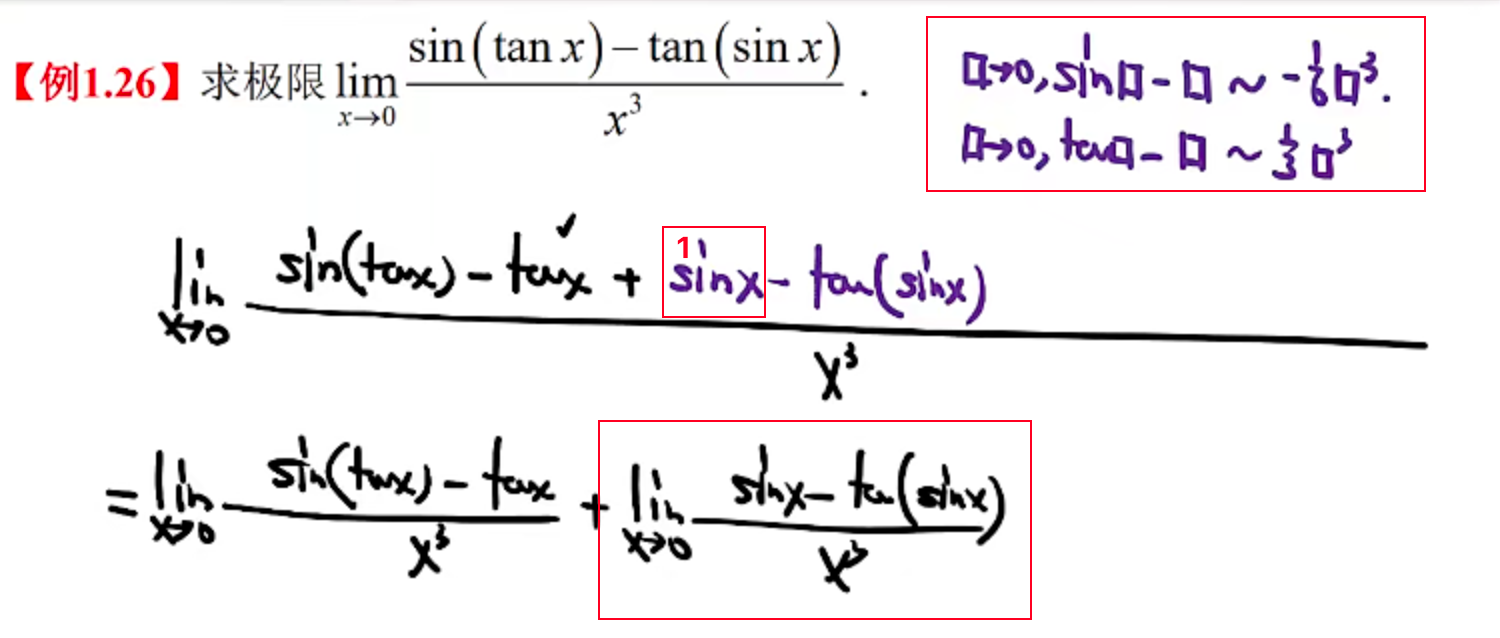 【例1.26】求极限 lim x→0 (sin(tan x) − tan(sin x)) / x³ .
□→0, sin□ - □ ~ -1/6 □³.
□→0, tan□ - □ ~ 1/3 □³
lim x→0 (sin(tanx) - tanx + sinx - tan(sinx)) / x³
1
= lim x→0 (sin(tanx) - tanx) / x³ + lim x→0 (sinx - tan(sinx)) / x³